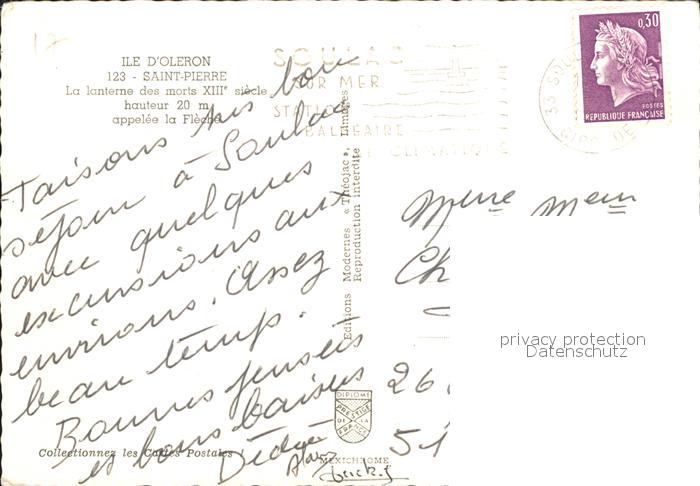 ILE D'OLERON
123 - SAINT-PIERRE
La lanterne des morts XIIIe siècle
hauteur 20 m
appelée la Flèche
SOULAC
SUR MER
STATION
BALNEAIRE
0,30
POSTES
REPUBLIQUE FRANÇAISE
33 SOUL
GIRONDE
Faisons très bon
séjour à Soulac
avec quelques
excursions aux
environs. Assez
beau temps.
Bonnes pensées
et bons baisers
Editions Modernes « Théojac », Limoges
Reproduction interdite
Mme
Ch
26
51
privacy protection
Datenschutz
DIPLOME
PRESTIGE
DE LA
FRANCE
Collectionnez les Cartes Postales !
MEXICHROME